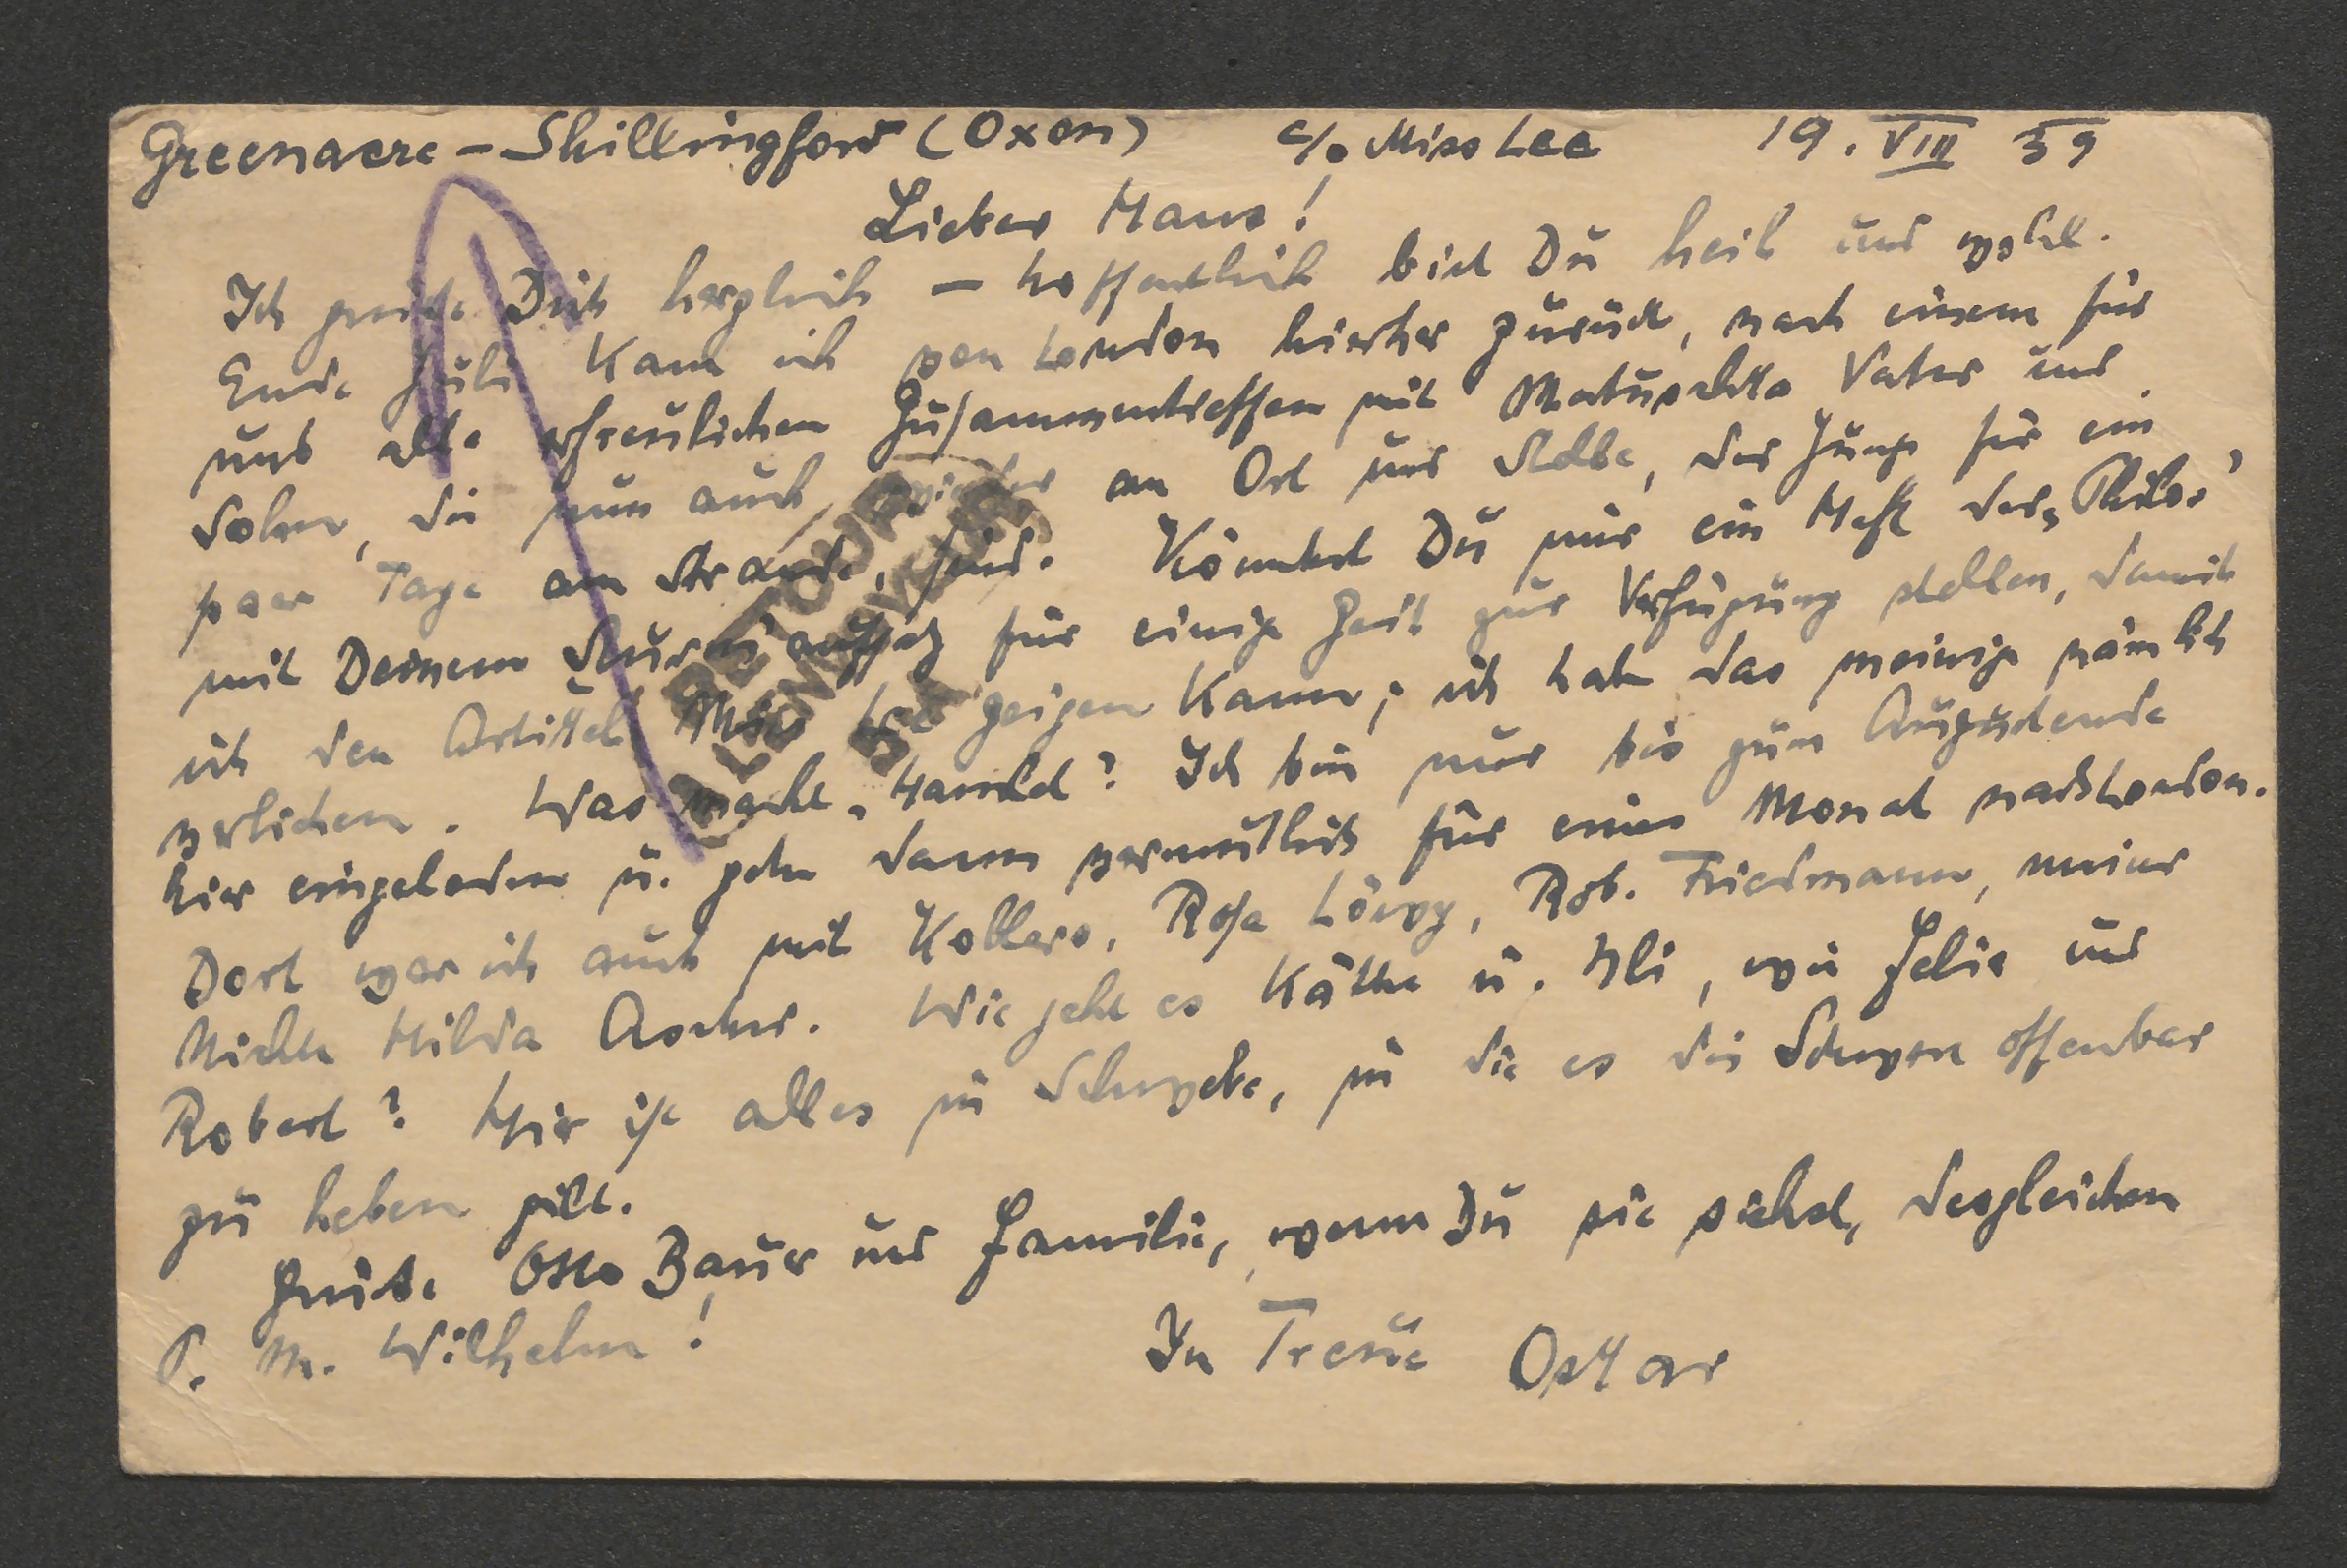 Greenacre – Shillingford (Oxon) c/o Miss Lee 19. VIII 39
Lieber Hans!
Ich grüße Dich herzlich – hoffentlich bist Du heil und wohl.
Ende Juli kam ich von London hierher zurück, nach einem für
uns alle erfreulichen Zusammentreffen mit Vater und
Sohn, die nun auch, wieder an Ort und Stelle, der Junge für ein
paar Tage am Strande, sind. Könntest Du mir ein Heft der „Philo.”
mit Deinem aufsatz für einige Zeit zur Verfügung stellen, damit
ich den Artikel Miss Lee zeigen kann; ich habe das meinige nämlich
verliehen. Was macht „Hamlet? Ich bin nur bis zum Augustende
hier eingeladen u. gehe dann vermutlich für einen Monat nach London.
Dort war ich auch mit Kollers, Rosa Löwy, Rob. Friedmann, meiner
Nichte Hilda Ascher. Wie geht es Käthe u. Ili, wie Felix und
Robert? Hier ist alles in Schwebe, in die es die Schwere offenbar
zu heben gilt.
Grüße Otto Bauer und Familie, wenn Du sie siehst, desgleichen
P. M. Wilhelm!
In Treue Oskar
RETOUR
A L'ENVOYEUR